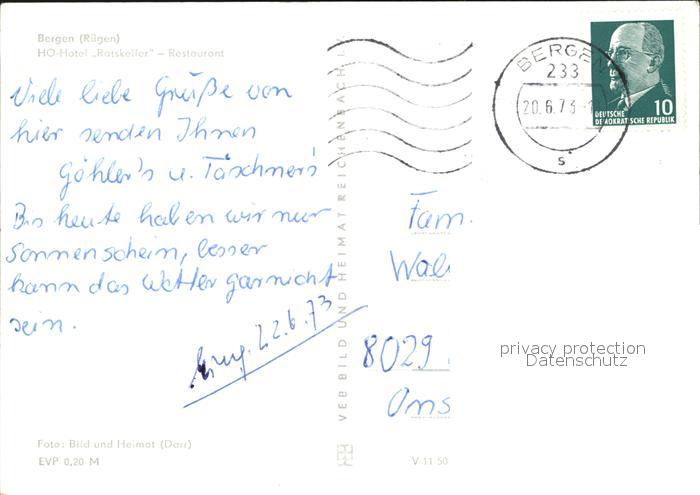 Bergen (Rügen)
HO-Hotel „Ratskeller" – Restaurant
Viele liebe Grüße von
hier senden Ihnen
Göhler's u. Täschner's
Bis heute haben wir nur
Sonnenschein, besser
kann das Wetter garnicht
sein.
22.6.73
Foto: Bild und Heimat (Darr)
EVP 0,20 M
VEB BILD UND HEIMAT REICHENBACH i. V.
V 11 50
BERGEN
233
20.6.73
s
10
DEUTSCHE
DEMOKRATISCHE REPUBLIK
Fam.
8029
privacy protection
Datenschutz